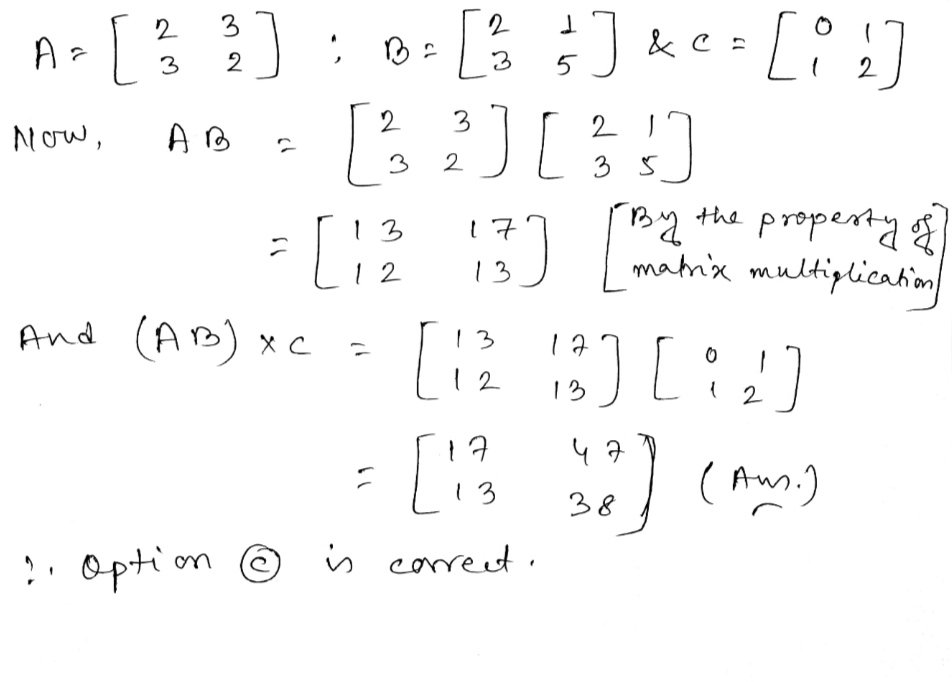 A = [ 2 3 ; 3 2 ] ; B = [ 2 1 ; 3 5 ] & C = [ 0 1 ; 1 2 ]
Now, AB = [ 2 3 ; 3 2 ] [ 2 1 ; 3 5 ]
= [ 13 17 ; 12 13 ] [ By the property of matrix multiplication ]
And (AB) × C = [ 13 17 ; 12 13 ] [ 0 1 ; 1 2 ]
= [ 17 47 ; 13 38 ] (Ans.)
∴ Option ⓒ is correct.